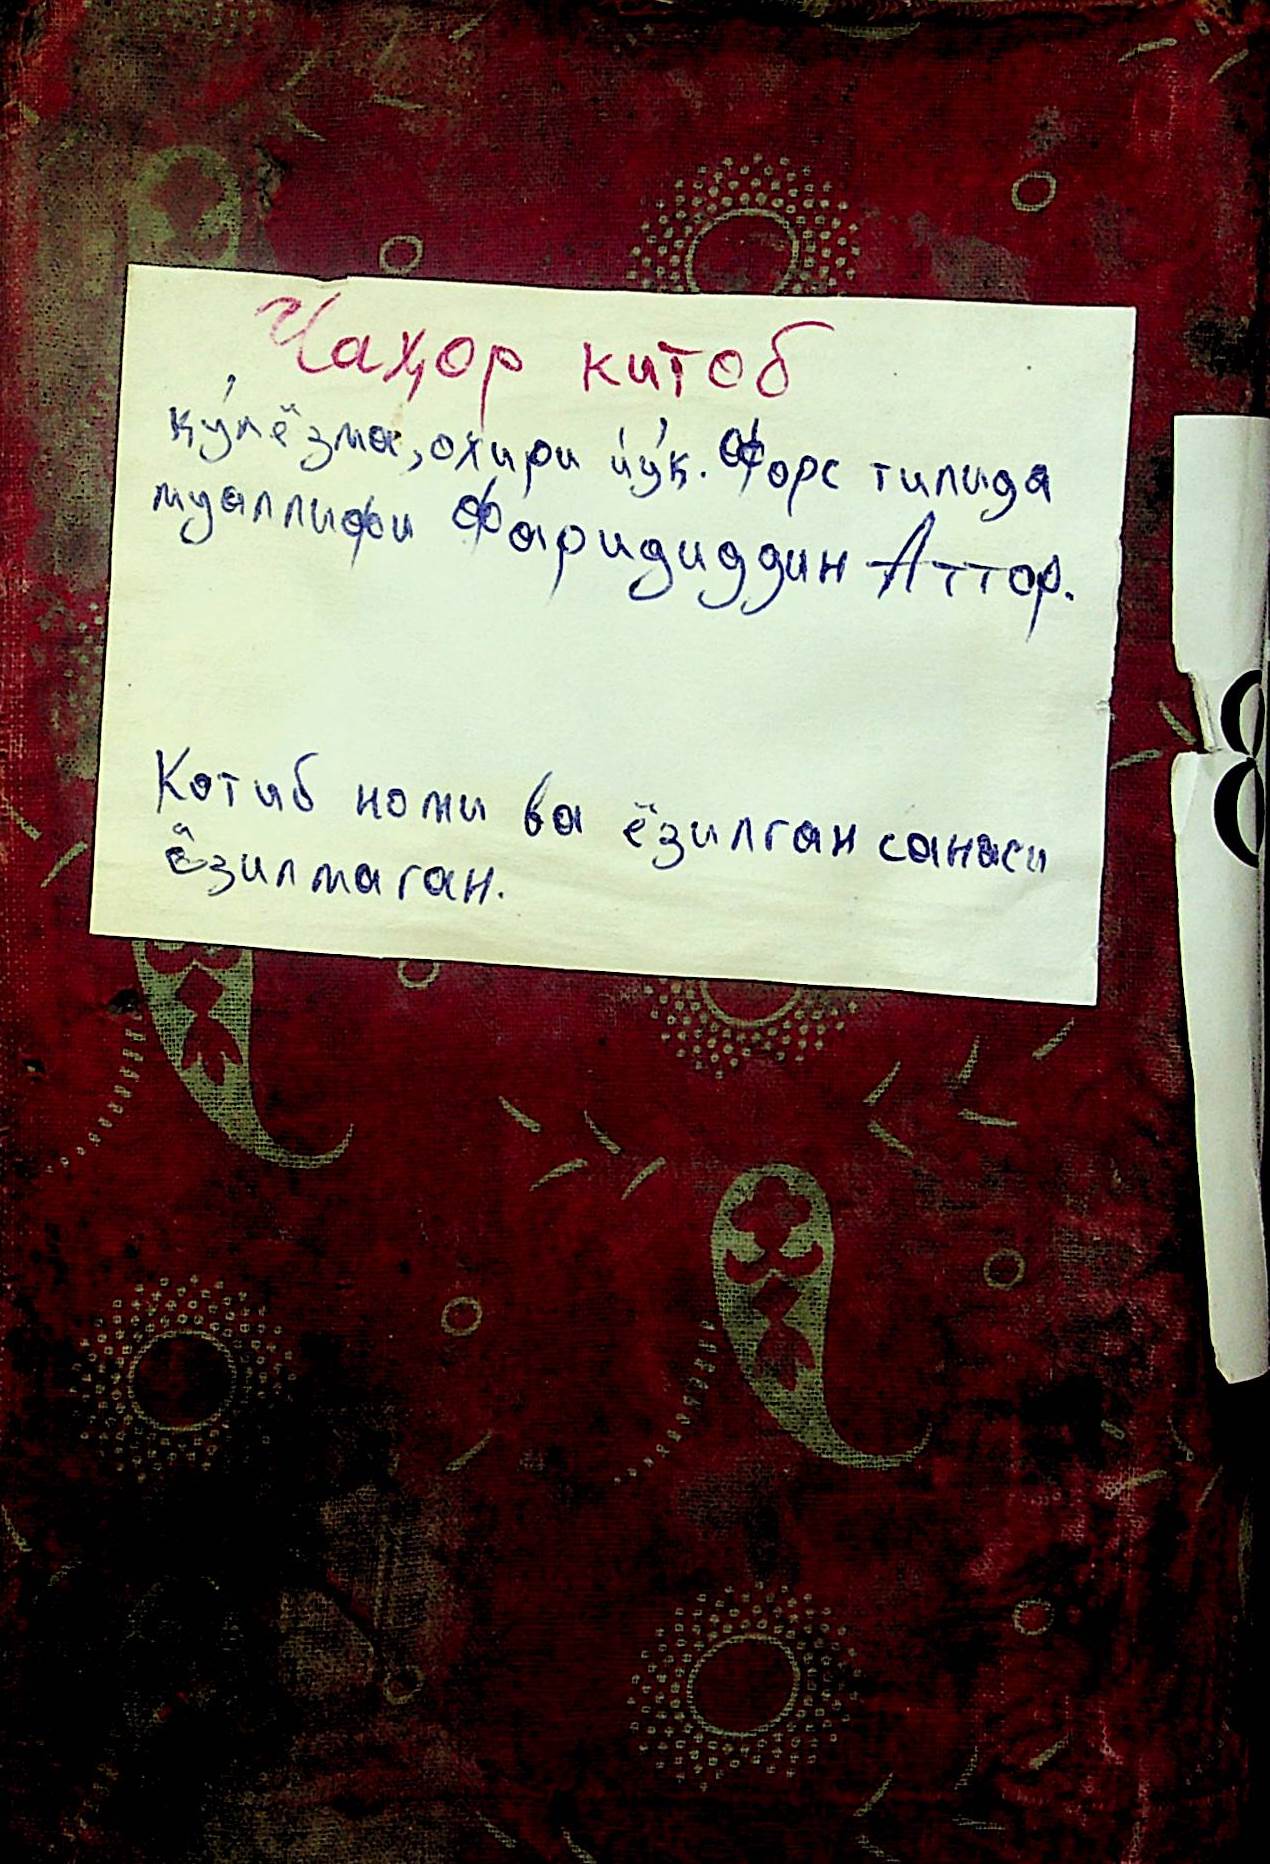 Чаҳор китоб
кўлёзма, охири йўқ. Форс тилида
муаллифи Фаридиддин Аттор.
Котиб номи ва ёзилган санаси
ёзилмаган.
8